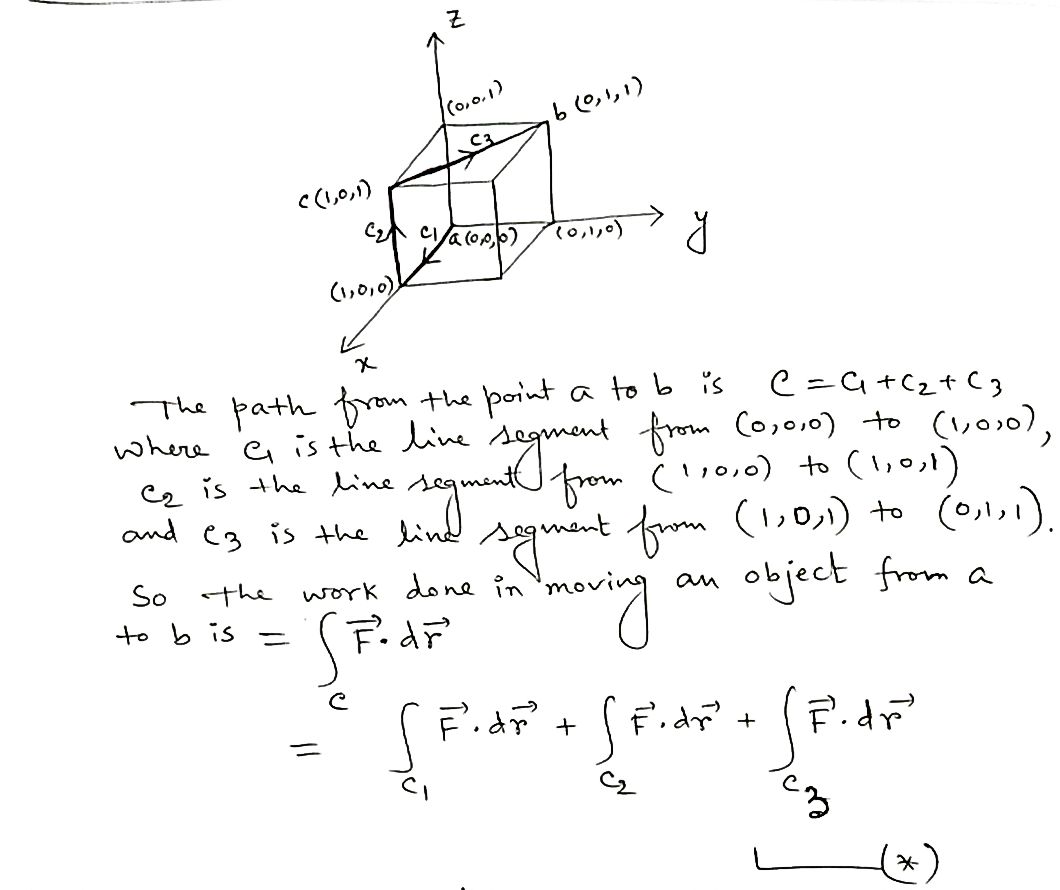 z
(0,0,1)
b (0,1,1)
C3
c (1,0,1)
C2
C1
a (0,0,0)
(0,1,0)
y
(1,0,0)
x
The path from the point a to b is C = C1 + C2 + C3
where C1 is the line segment from (0,0,0) to (1,0,0),
C2 is the line segment from (1,0,0) to (1,0,1)
and C3 is the line segment from (1,0,1) to (0,1,1).
So the work done in moving an object from a
to b is = ∫_C F⃗. dr⃗
= ∫_C1 F⃗. dr⃗ + ∫_C2 F⃗. dr⃗ + ∫_C3 F⃗. dr⃗
(*)